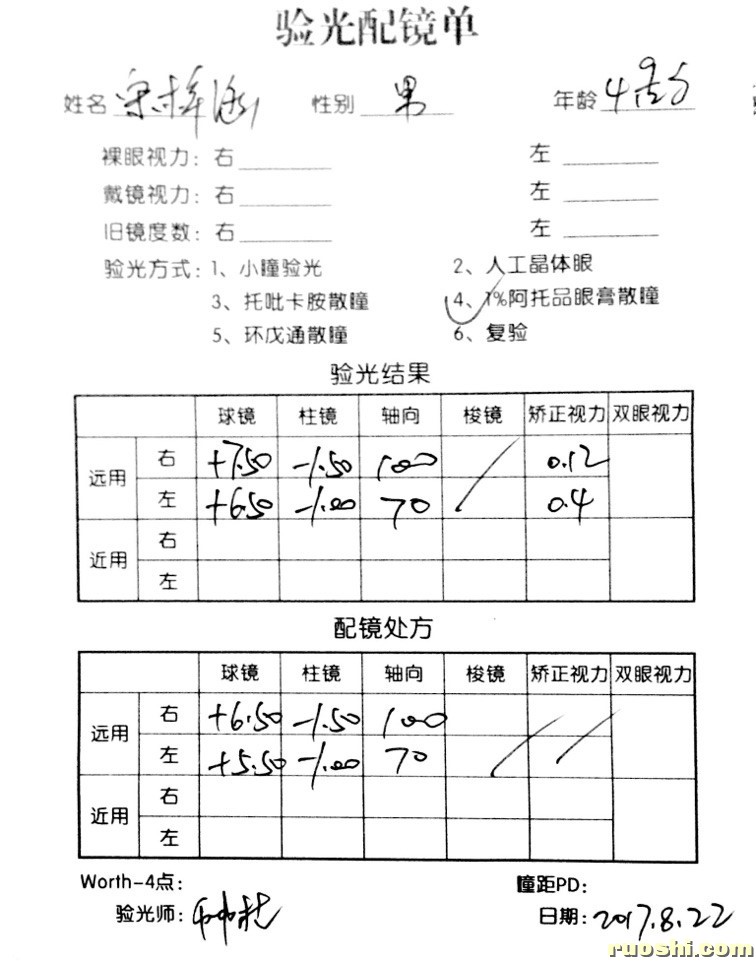 验光配镜单
姓名 宋梓涵 性别 男 年龄 4岁9
裸眼视力：右 左
戴镜视力：右 左
旧镜度数：右 左
验光方式：1、小瞳验光 2、人工晶体眼
3、托吡卡胺散瞳 4、1%阿托品眼膏散瞳
5、环戊通散瞳 6、复验
验光结果
球镜 柱镜 轴向 梭镜 矫正视力 双眼视力
远用 右 +7.50 -1.50 100 0.12
左 +6.50 -1.00 70 0.4
近用 右
左
配镜处方
球镜 柱镜 轴向 梭镜 矫正视力 双眼视力
远用 右 +6.50 -1.50 100
左 +5.50 -1.00 70
近用 右
左
Worth-4点： 瞳距PD：
验光师： 日期：2017.8.22
ruoshi.com